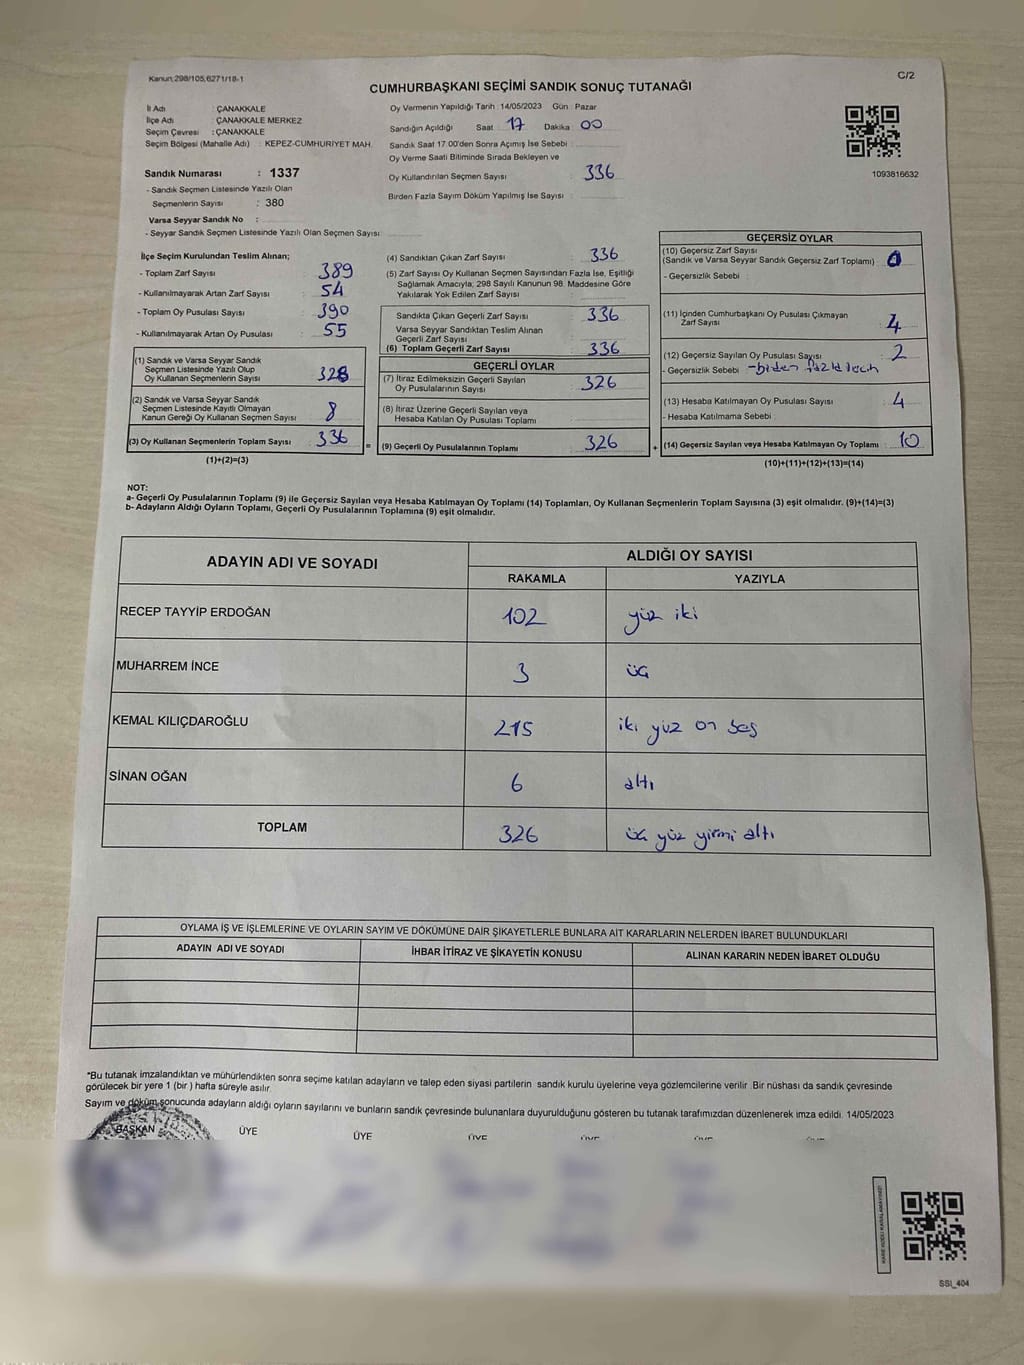 Kanun:298/105,6271/18-1
C/2
CUMHURBAŞKANI SEÇİMİ SANDIK SONUÇ TUTANAĞI
İl Adı : ÇANAKKALE
İlçe Adı : ÇANAKKALE MERKEZ
Seçim Çevresi : ÇANAKKALE
Seçim Bölgesi (Mahalle Adı) : KEPEZ-CUMHURİYET MAH.
Sandık Numarası : 1337
- Sandık Seçmen Listesinde Yazılı Olan
Seçmenlerin Sayısı : 380
Varsa Seyyar Sandık No :
- Seyyar Sandık Seçmen Listesinde Yazılı Olan Seçmen Sayısı:
Oy Vermenin Yapıldığı Tarih : 14/05/2023 Gün : Pazar
Sandığın Açıldığı Saat 17 Dakika 00
Sandık Saat 17.00'den Sonra Açımış İse Sebebi :
Oy Verme Saati Bitiminde Sırada Bekleyen ve
Oy Kullandırılan Seçmen Sayısı : 336
Birden Fazla Sayım Döküm Yapılmış İse Sayısı :
1093816632
İlçe Seçim Kurulundan Teslim Alınan;
- Toplam Zarf Sayısı : 389
- Kullanılmayarak Artan Zarf Sayısı : 54
- Toplam Oy Pusulası Sayısı : 390
- Kullanılmayarak Artan Oy Pusulası : 55
(1) Sandık ve Varsa Seyyar Sandık
Seçmen Listesinde Yazılı Olup
Oy Kullanan Seçmenlerin Sayısı : 328
(2) Sandık ve Varsa Seyyar Sandık
Seçmen Listesinde Kayıtlı Olmayan
Kanun Gereği Oy Kullanan Seçmen Sayısı : 8
(3) Oy Kullanan Seçmenlerin Toplam Sayısı : 336
(1)+(2)=(3)
=
(4) Sandıktan Çıkan Zarf Sayısı : 336
(5) Zarf Sayısı Oy Kullanan Seçmen Sayısından Fazla İse, Eşitliği
Sağlamak Amacıyla; 298 Sayılı Kanunun 98. Maddesine Göre
Yakılarak Yok Edilen Zarf Sayısı :
Sandıkta Çıkan Geçerli Zarf Sayısı : 336
Varsa Seyyar Sandıktan Teslim Alınan
Geçerli Zarf Sayısı :
(6) Toplam Geçerli Zarf Sayısı : 336
GEÇERLİ OYLAR
(7) İtiraz Edilmeksizin Geçerli Sayılan
Oy Pusulalarının Sayısı : 326
(8) İtiraz Üzerine Geçerli Sayılan veya
Hesaba Katılan Oy Pusulası Toplamı :
(9) Geçerli Oy Pusulalarının Toplamı : 326
+
GEÇERSİZ OYLAR
(10) Geçersiz Zarf Sayısı
(Sandık ve Varsa Seyyar Sandık Geçersiz Zarf Toplamı) : 0
- Geçersizlik Sebebi :
(11) İçinden Cumhurbaşkanı Oy Pusulası Çıkmayan
Zarf Sayısı : 4
(12) Geçersiz Sayılan Oy Pusulası Sayısı : 2
- Geçersizlik Sebebi : -birden fazla
(13) Hesaba Katılmayan Oy Pusulası Sayısı : 4
- Hesaba Katılmama Sebebi :
(14) Geçersiz Sayılan veya Hesaba Katılmayan Oy Toplamı : 10
(10)+(11)+(12)+(13)=(14)
NOT:
a- Geçerli Oy Pusulalarının Toplamı (9) ile Geçersiz Sayılan veya Hesaba Katılmayan Oy Toplamı (14) Toplamları, Oy Kullanan Seçmenlerin Toplam Sayısına (3) eşit olmalıdır. (9)+(14)=(3)
b- Adayların Aldığı Oyların Toplamı, Geçerli Oy Pusulalarının Toplamına (9) eşit olmalıdır.
ADAYIN ADI VE SOYADI ALDIĞI OY SAYISI
RAKAMLA YAZIYLA
RECEP TAYYİP ERDOĞAN 102 yüz iki
MUHARREM İNCE 3 üç
KEMAL KILIÇDAROĞLU 215 iki yüz on beş
SİNAN OĞAN 6 altı
TOPLAM 326 üç yüz yirmi altı
OYLAMA İŞ VE İŞLEMLERİNE VE OYLARIN SAYIM VE DÖKÜMÜNE DAİR ŞİKAYETLERLE BUNLARA AİT KARARLARIN NELERDEN İBARET BULUNDUKLARI
ADAYIN ADI VE SOYADI İHBAR İTİRAZ VE ŞİKAYETİN KONUSU ALINAN KARARIN NEDEN İBARET OLDUĞU
*Bu tutanak imzalandıktan ve mühürlendikten sonra seçime katılan adayların ve talep eden siyasi partilerin sandık kurulu üyelerine veya gözlemcilerine verilir .Bir nüshası da sandık çevresinde
görülecek bir yere 1 (bir ) hafta süreyle asılır.
Sayım ve döküm sonucunda adayların aldığı oyların sayılarını ve bunların sandık çevresinde bulunanlara duyurulduğunu gösteren bu tutanak tarafımızdan düzenlenerek imza edildi. 14/05/2023
BAŞKAN ÜYE ÜYE ÜYE ÜYE ÜYE ÜYE
SSI_404